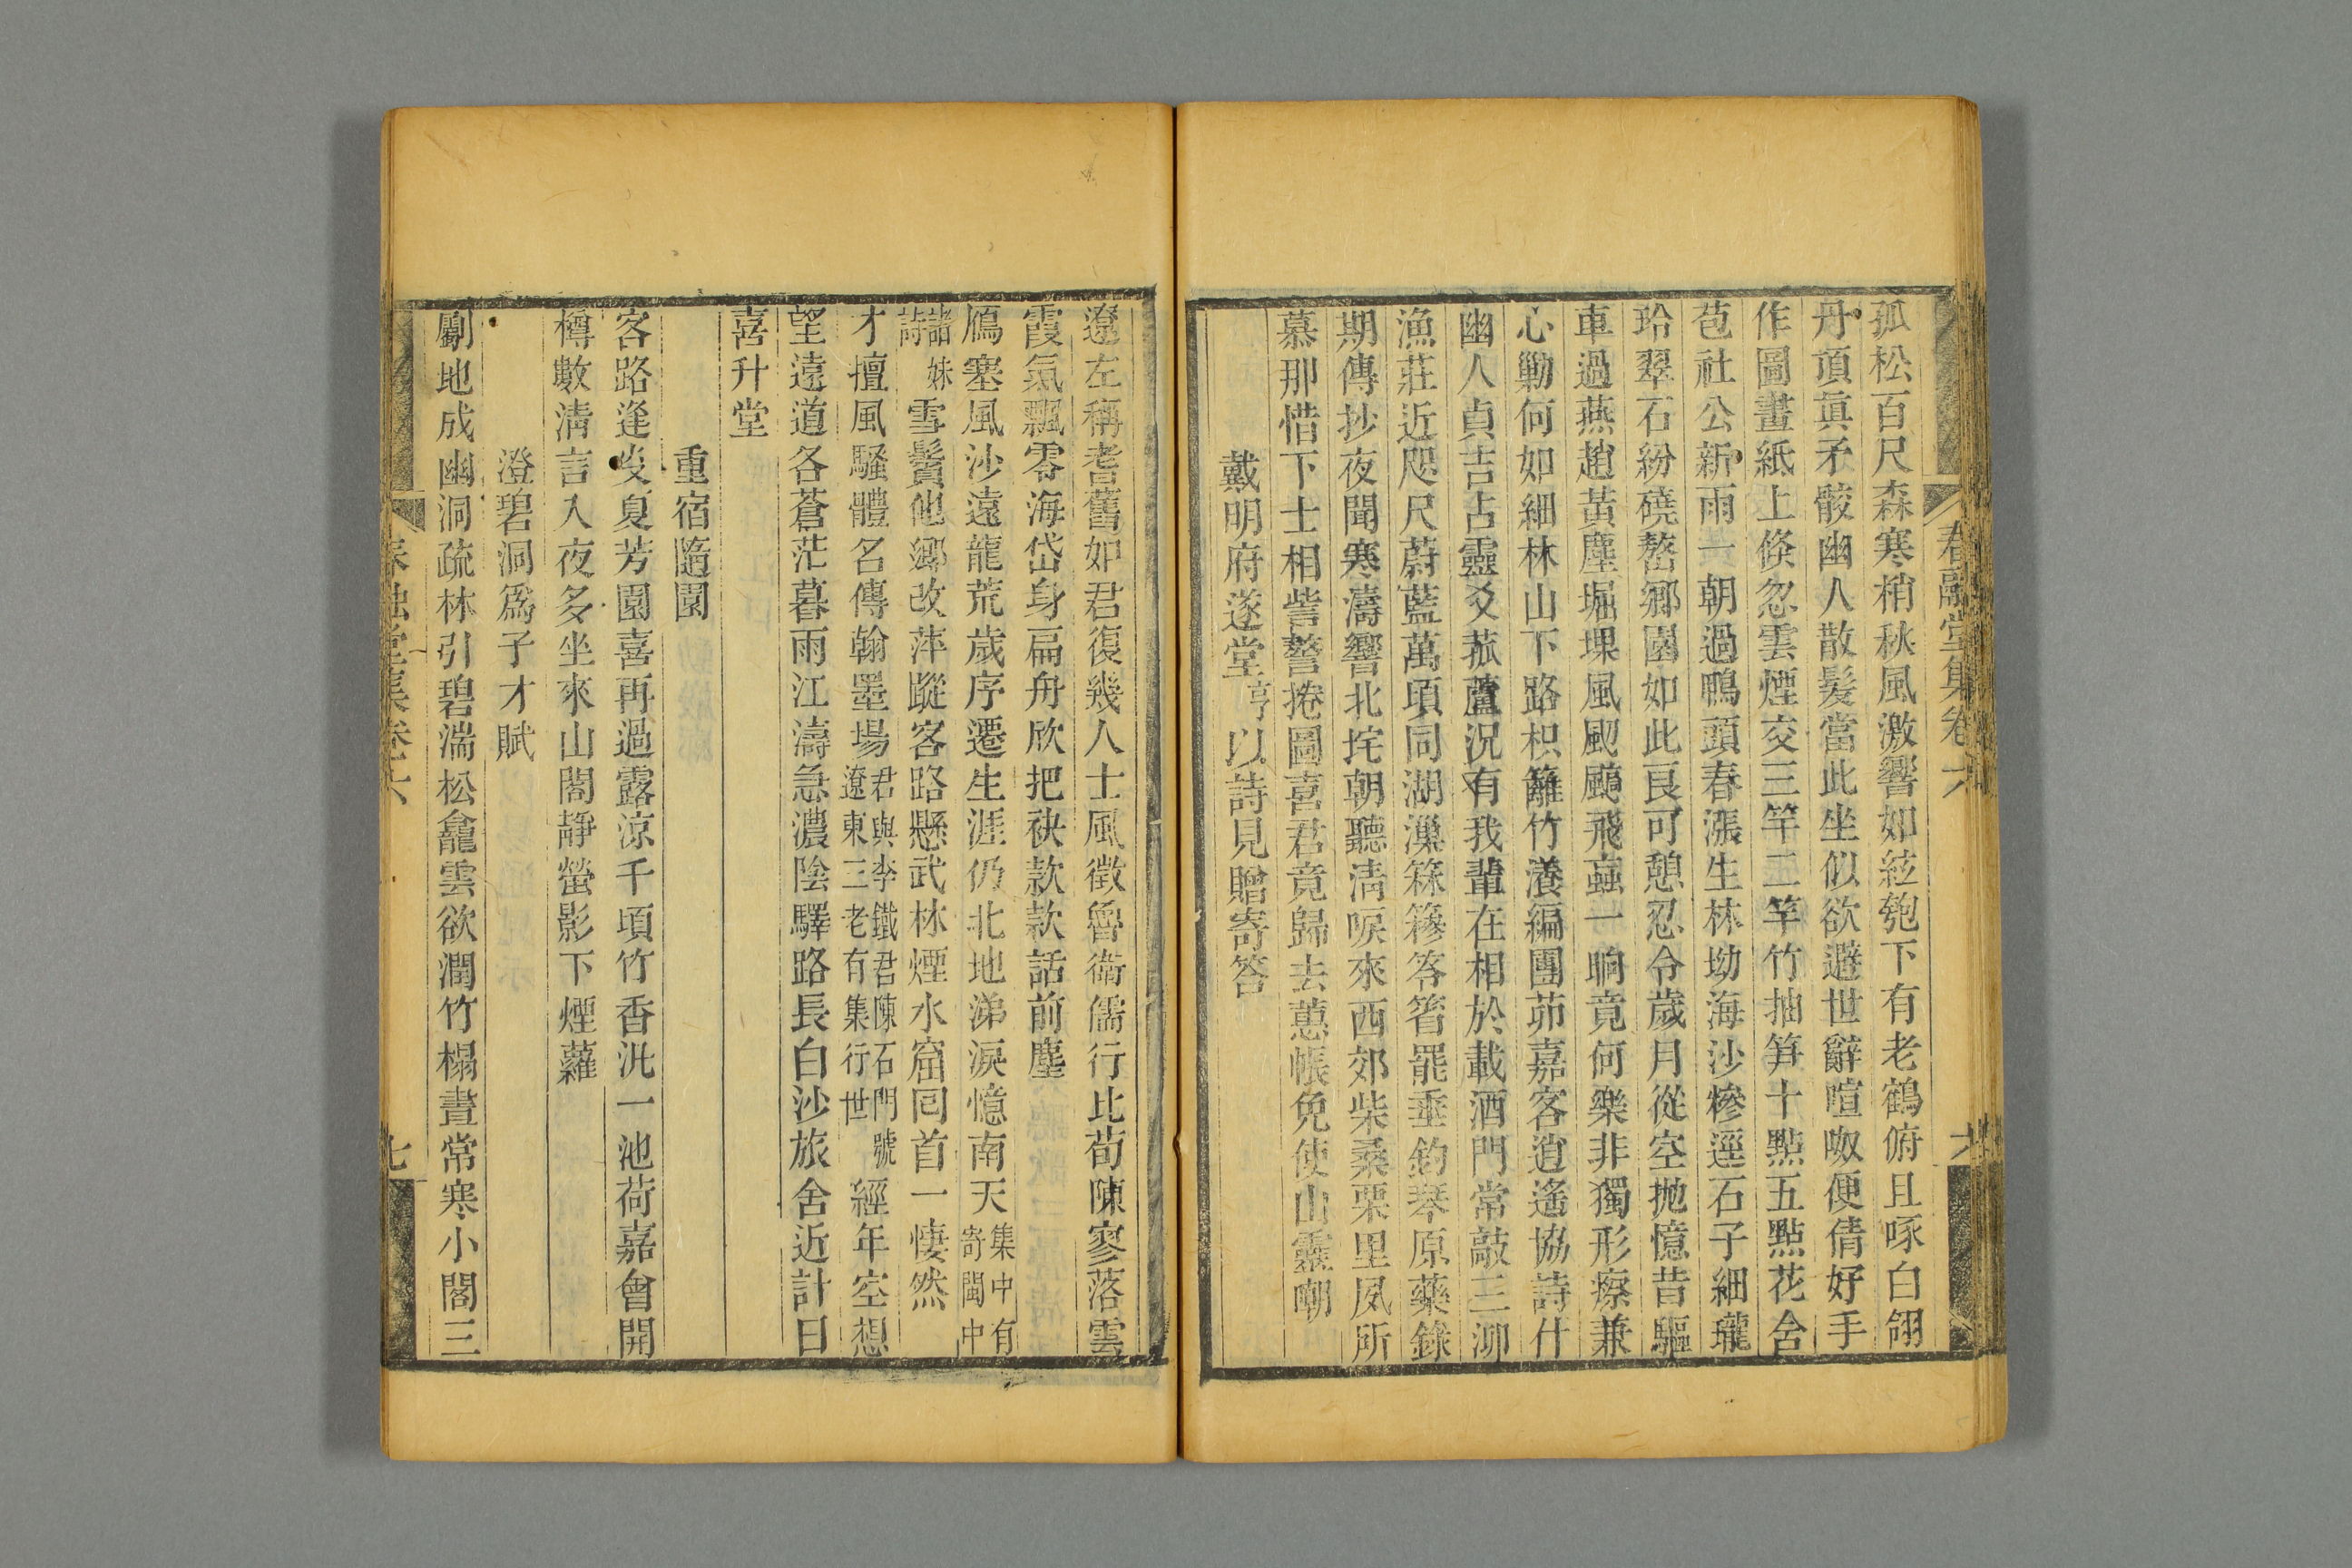 春融堂集卷六
六
孤松百尺森寒梢秋風激響如絃匏下有老鶴俯且啄白翎
丹頂眞矛骹幽人散髮當此坐似欲避世辭喧呶便倩好手
作圖畫紙上倏忽雲煙交三竿二竿竹抽笋十㸃五㸃花含
苞社公新雨一朝過鴨頭春漲生林坳海沙糝逕石子細瓏
玲翠石紛磽嶅鄉園如此良可憩忍令歲月從空拋憶昔驅
車過燕趙黃塵堀堁風颲飈飛蝱一晌竟何樂非獨形瘵兼
心勦何如細林山下路枳籬竹瀁編團茆嘉客逍遙協詩什
幽人貞吉占靈爻菰蘆況有我輩在相於載酒門常敲三泖
漁莊近咫尺蔚藍萬頃同湖漅箖篸笿箵罷垂釣琴原藥錄
期傳抄夜聞寒濤響北垞朝聽淸唳來西郊柴桑栗里夙所
慕那惜下士相訾謷捲圖喜君竟歸去蕙帳免使山靈嘲
戴明府遂堂亨以詩見贈寄答
遼左稱耆舊如君復幾人士風徵魯衛儒行比荀陳寥落雲
霞氣飄零海岱身扁舟欣把袂款款話前塵
鴈塞風沙遠龍荒歲序遷生涯仍北地涕淚憶南天集中有寄閩中
諸妹詩雪鬢他鄉改萍蹤客路懸武林煙水窟囘首一悽然
才擅風騷體名傳翰墨場君與李鐵君陳石門號遼東三老有集行世經年空想
望遠道各蒼茫暮雨江濤急濃陰驛路長白沙旅舍近計日
喜升堂
重宿隨園
客路逢炎夏芳園喜再過露涼千頃竹香汎一池荷嘉會開
樽數淸言入夜多坐來山閣靜螢影下煙蘿
澄碧洞爲子才賦
劚地成幽洞疏林引碧湍松龕雲欲潤竹榻晝常寒小閣三
春融堂集卷六
七